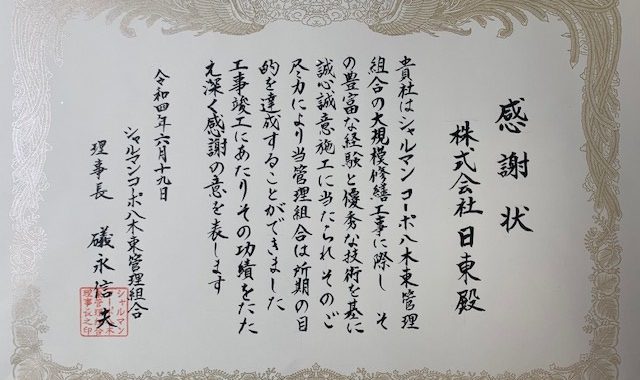 感謝状
株式会社 日東殿
貴社はシャルマンコーポ八木東管理
組合の大規模修繕工事に際し そ
の豊富な経験と優秀な技術を基に
誠心誠意施工に当たられ そのご
尽力により当管理組合は所期の目
的を達成することができました
工事竣工にあたりその功績をたた
え深く感謝の意を表します
令和四年六月十九日
シャルマンコーポ八木東管理組合
理事長 礒永信夫
シャルマン
コーポ八木
東管理組合
理事長之印